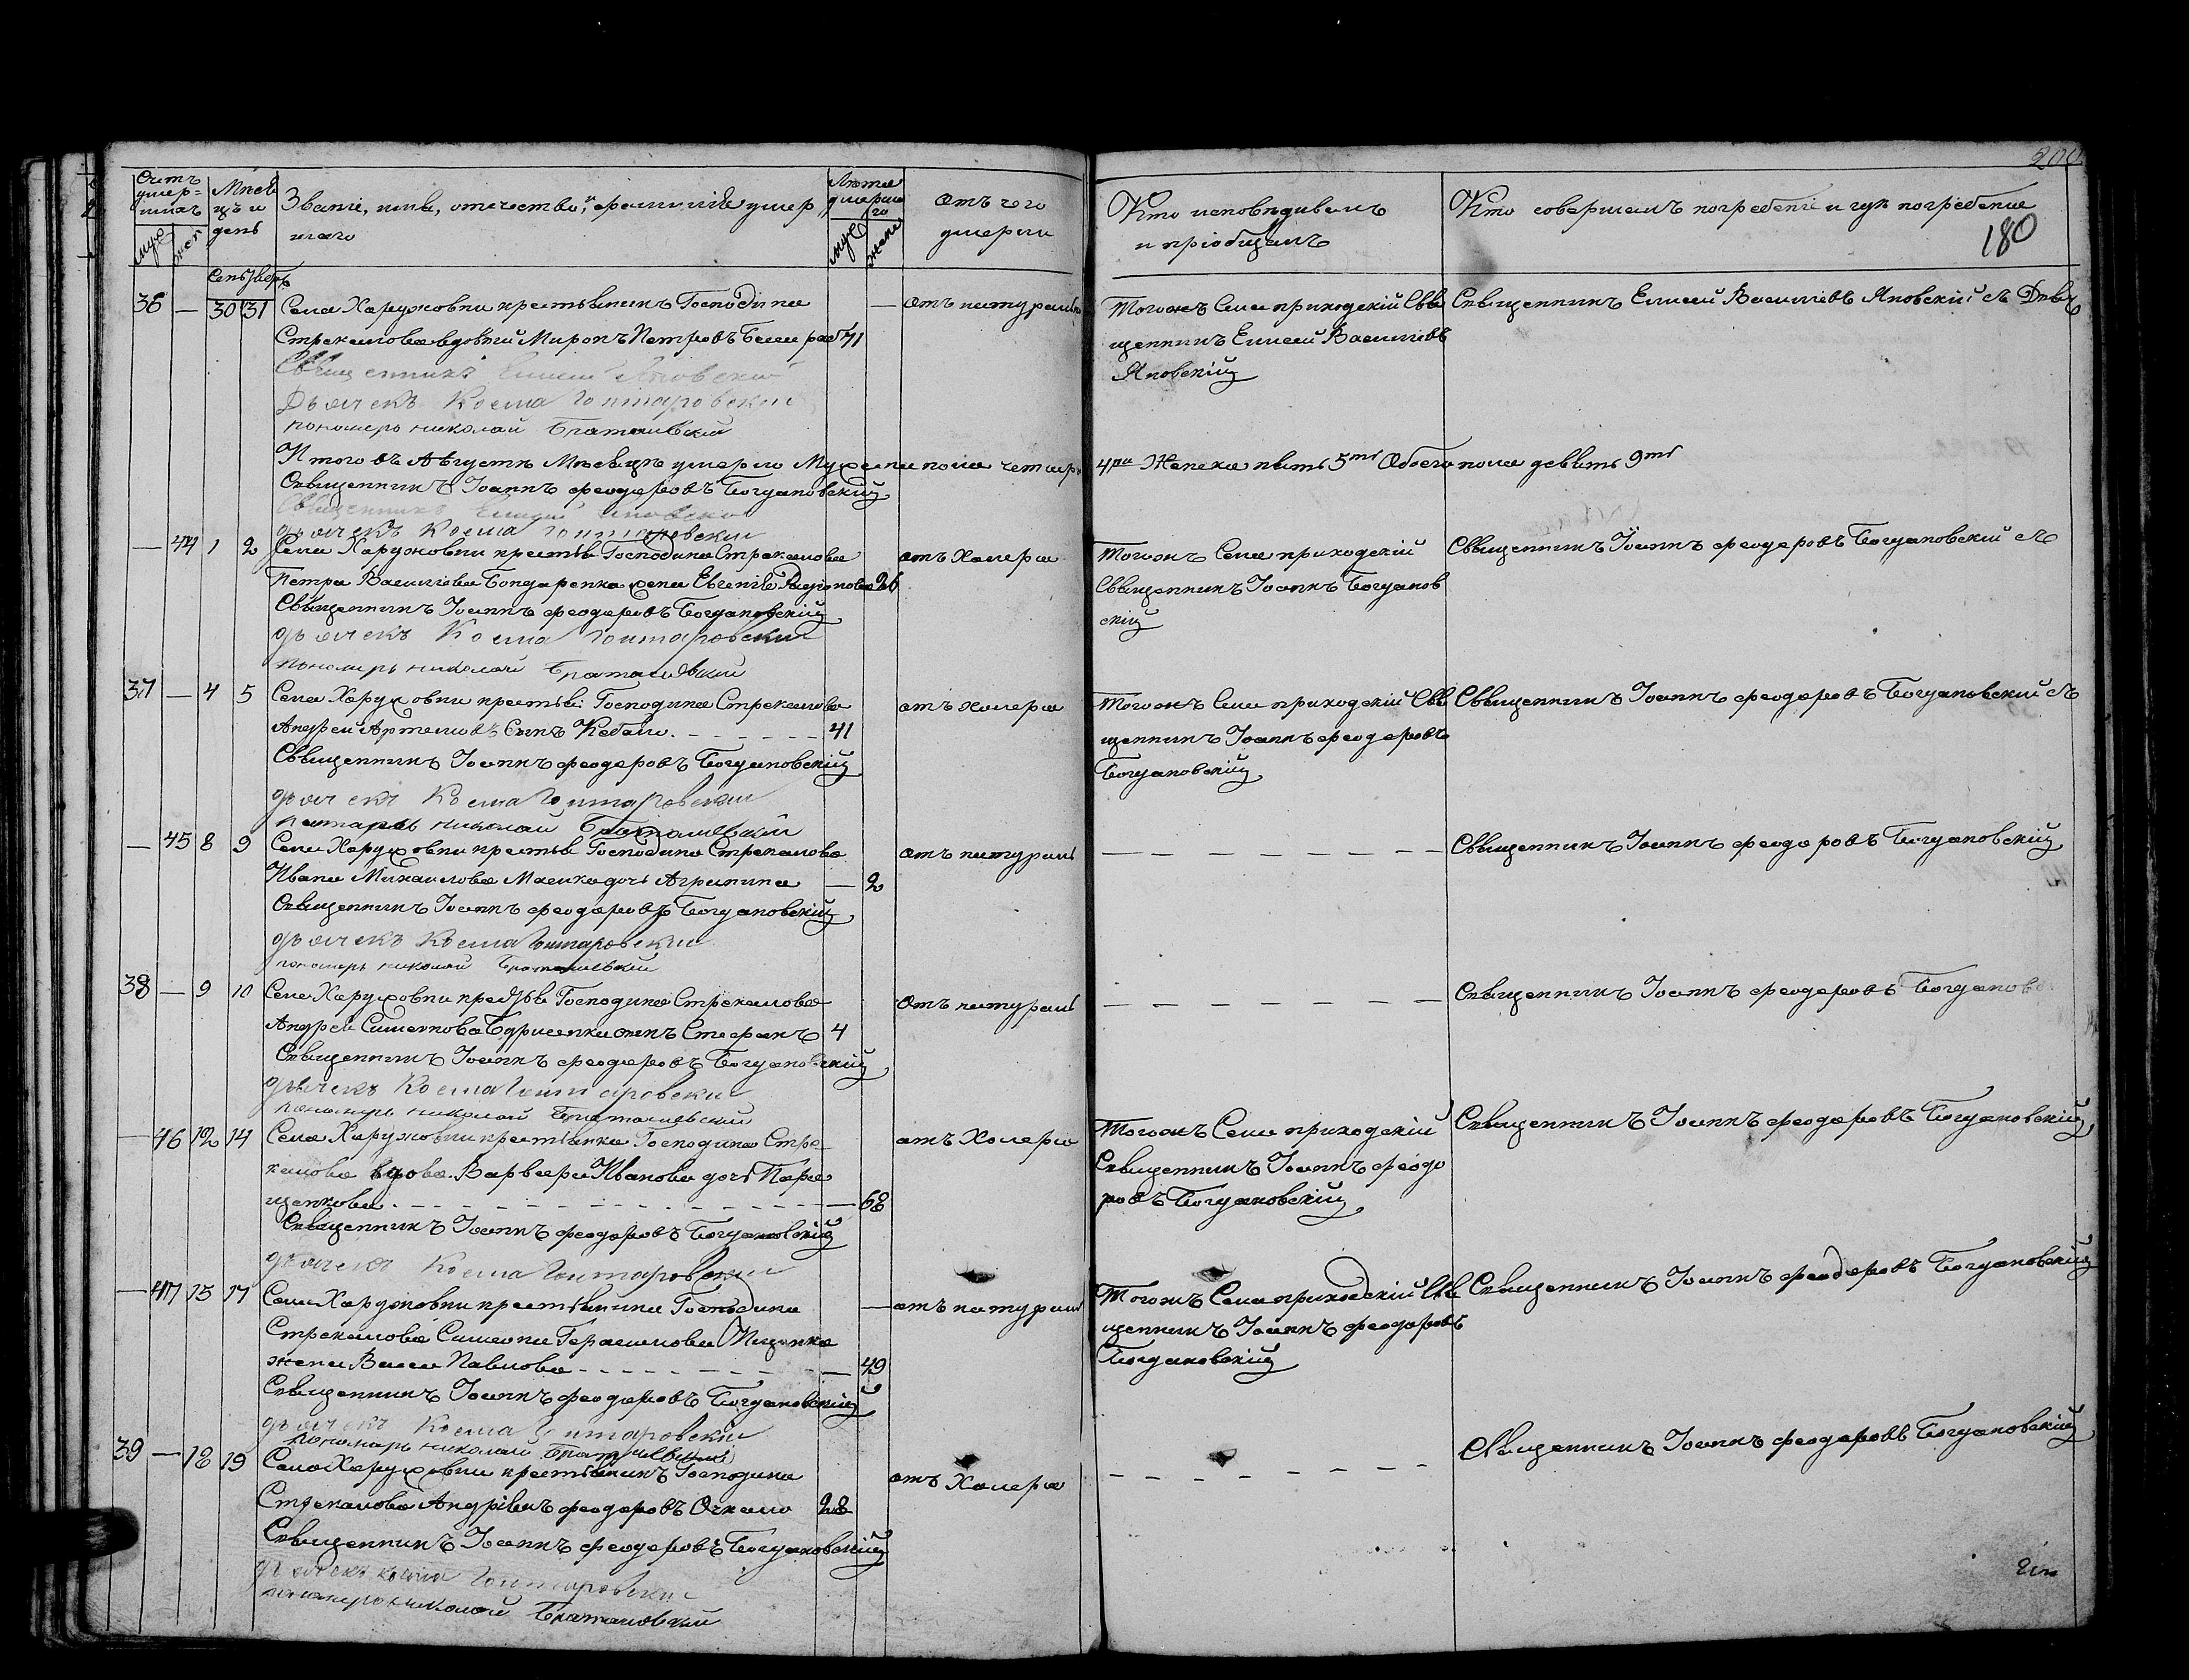 200
180
Счетъ умер=шихъ
муж жен
Мѣсяцъ и день
Званіе, имя, отчество, и фамилія умершаго
Лѣта умершаго
муж жен
Отъ чего умерли
Кто исповѣдивалъ и пріобщалъ
Кто совершалъ погребеніе и гдѣ погребены
Сентябрь
36 — 30 31 Села Харужовки крестьянинъ Господина — отъ натуральной
Стрекалова вдовый Миронъ Петровъ 71
Священникъ Елисей Яновскій
Дьячекъ Косма Гонтаровскій
пономарь николай Браталивскій
Тогожъ Села приходскій Свя
щенникъ Елисей Васильевъ
Яновскій
Священникъ Елисей Васильевъ Яновскій съ
Итого въ Августѣ Мѣсяцѣ умерло Мужеска пола четыри 4ри Женска пять 5ть Обоего пола девять 9ть
Священникъ Іоаннъ Феодоровъ Богдановскій
Священникъ Елисей Яновскій
дьячекъ Косма Гонтаровскій
— 44 1 2 Села Харужовки крестья Господина Стрекалова отъ Холеры
Петра Васильева Бондаренка жена Евгенія 26
Священникъ Іоаннъ Феодоровъ Богдановскій
дьячекъ Косма Гонтаровскій
пономарь николай Браталивскій
Тогожъ Села приходскій
Священникъ Іоаннъ Богданов
скій
Священникъ Іоаннъ Феодоровъ Богдановскій
37 — 4 5 Села Харужовки крестья: Господина Стрекалова отъ холеры
Андрей Артемовъ Сынъ Кебало 41
Священникъ Іоаннъ Феодоровъ Богдановскій
дьячекъ Косма Гонтаровскій
пономарь николай Браталивскій
Тогожъ Села приходскій Свя
щенникъ Іоаннъ Феодоровъ
Богдановскій
Священникъ Іоаннъ Феодоровъ Богдановскій съ
— 45 8 9 Села Харужовки крестья Господина Стрекалова отъ натураль
Ивана Михаилова дочь Агрипина — 2
Священникъ Іоаннъ Феодоровъ Богдановскій
дьячекъ Косма Гонтаровскій
пономарь николай Браталивскій
Священникъ Іоаннъ Феодоровъ Богдановскій
38 — 9 10 Села Харужовки крестья Господина Стрекалова отъ натураль
Андрея Симеонова сынъ Стефанъ 4
Священникъ Іоаннъ Феодоровъ Богдановскій
дьячекъ Косма Гонтаровскій
пономарь николай Браталивскій
Священникъ Іоаннъ Феодоровъ Богдановс
— 46 12 14 Села Харужовки крестьянка Господина Стре
калова вдова Варвара Иванова дочь Паре
щенкова — 68
отъ Холеры
Священникъ Іоаннъ Феодоровъ Богдановскій
дьячекъ Косма Гонтаровскій
Тогожъ Села приходскій
Священникъ Іоаннъ Феодо
ровъ Богдановскій
Священникъ Іоаннъ Феодоровъ Богдановскій
— 47 15 17 Села Харужовки крестьянина Господина — отъ натураль
Стрекалова Симеона Герасимова Ищенка
жена Васса Павлова — 49
Священникъ Іоаннъ Феодоровъ Богдановскій
дьячекъ Косма Гонтаровскій
пономарь николай Браталивскій
Тогожъ Села приходскій Свя
щенникъ Іоаннъ Феодоровъ
Богдановскій
Священникъ Іоаннъ Феодоровъ Богдановскій
39 — 18 19 Села Харужовки крестьянинъ Господина отъ Холеры
Стрекалова Андріянъ Феодоровъ Очкало 28
Священникъ Іоаннъ Феодоровъ Богдановскій
дьячекъ косма Гонтаровскій
пономарь николай Браталивскій
Священникъ Іоаннъ Феодоровъ Богдановскій